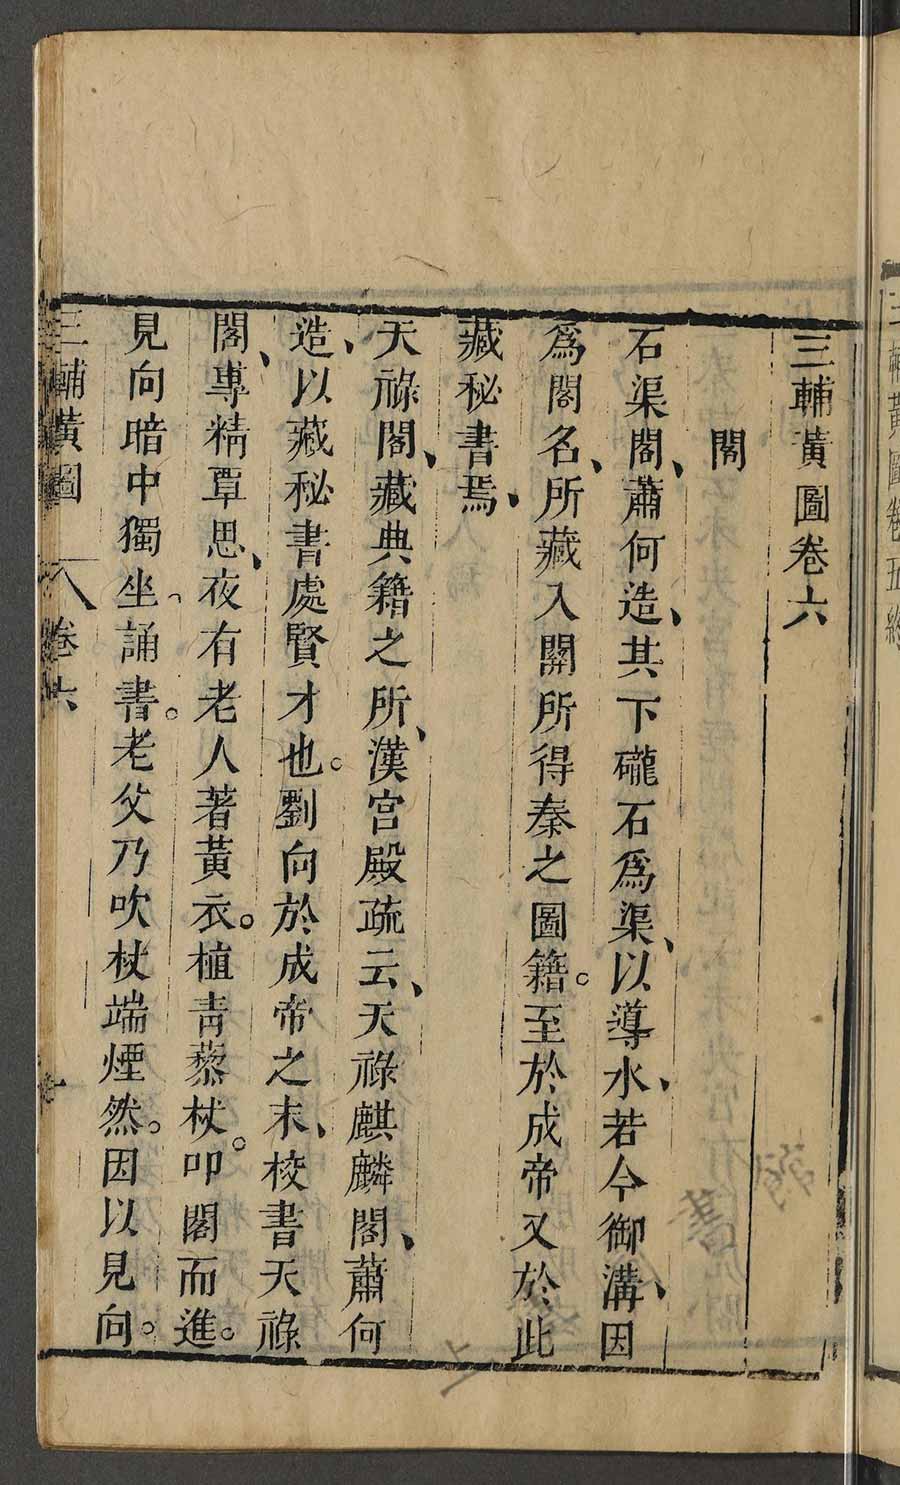 三輔黃圖卷六
閣
石渠閣、蕭何造、其下礲石爲渠、以導水、若今御溝、因
爲閣名、所藏入關所得秦之圖籍。至於成帝又於此
藏秘書焉、
天祿閣、藏典籍之所、漢宮殿疏云、天祿麒麟閣、蕭何
造、以藏秘書處賢才也。劉向於成帝之末、校書天祿
閣、專精覃思、夜有老人著黃衣。植青藜杖。叩閣而進。
見向暗中獨坐、誦書。老父乃吹杖端煙然。因以見向。
三輔黃圖 卷六 一
三輔黃圖卷五終